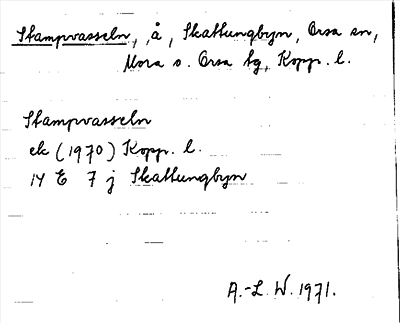 Stampvasseln, å, Skattungbyn, Orsa sn,
Mora o. Orsa tg, Kopp. l.
Stampvasseln
ek (1970) Kopp. l.
14 E 7 j Skattungbyn
A.-L. W. 1971.